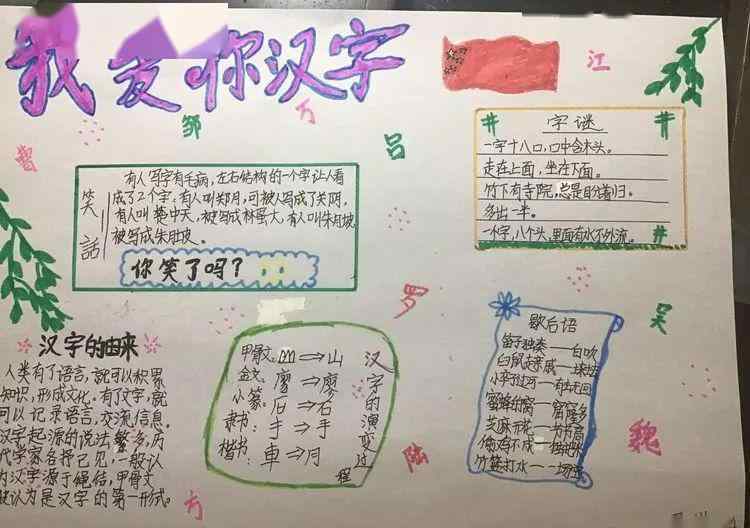 我爱你汉字
江
邹
万
吕
曹
字谜
一字十八口,口中含木头。
走在上面,坐在下面。
竹下有寺院,总是盼着归。
多出一半。
一木字,八个头,里面有水不外流。
笑話
有人写字有毛病,左右结构的一个字让人看
成了2个字,有人叫郑月,可被人写成了关阴,
有人叫蔡中天,被写成林蛋大,有人叫朱月坡
被写成朱肚皮。
你笑了吗?
罗
吴
汉字的由来
人类有了语言,就可以积累
知识,形成文化,有了文字,就
可以记录语言,交流信息。
汉字起源的说法繁多,历
代学家各抒己见,一般认
为汉字源于绳结,甲骨文
被认为是汉字的第一形式。
汉字的演变过程
甲骨文: ⇒山
金文: 廖⇒廖
小篆: 石⇒石
隶书: 手⇒手
楷书: 車⇒月
歇后语
笛子独奏——自吹
白鼠走亲戚——
小卒子过河——有去无回
芝麻开花——节节高
竹篮打水——一场空
陆
魏
方